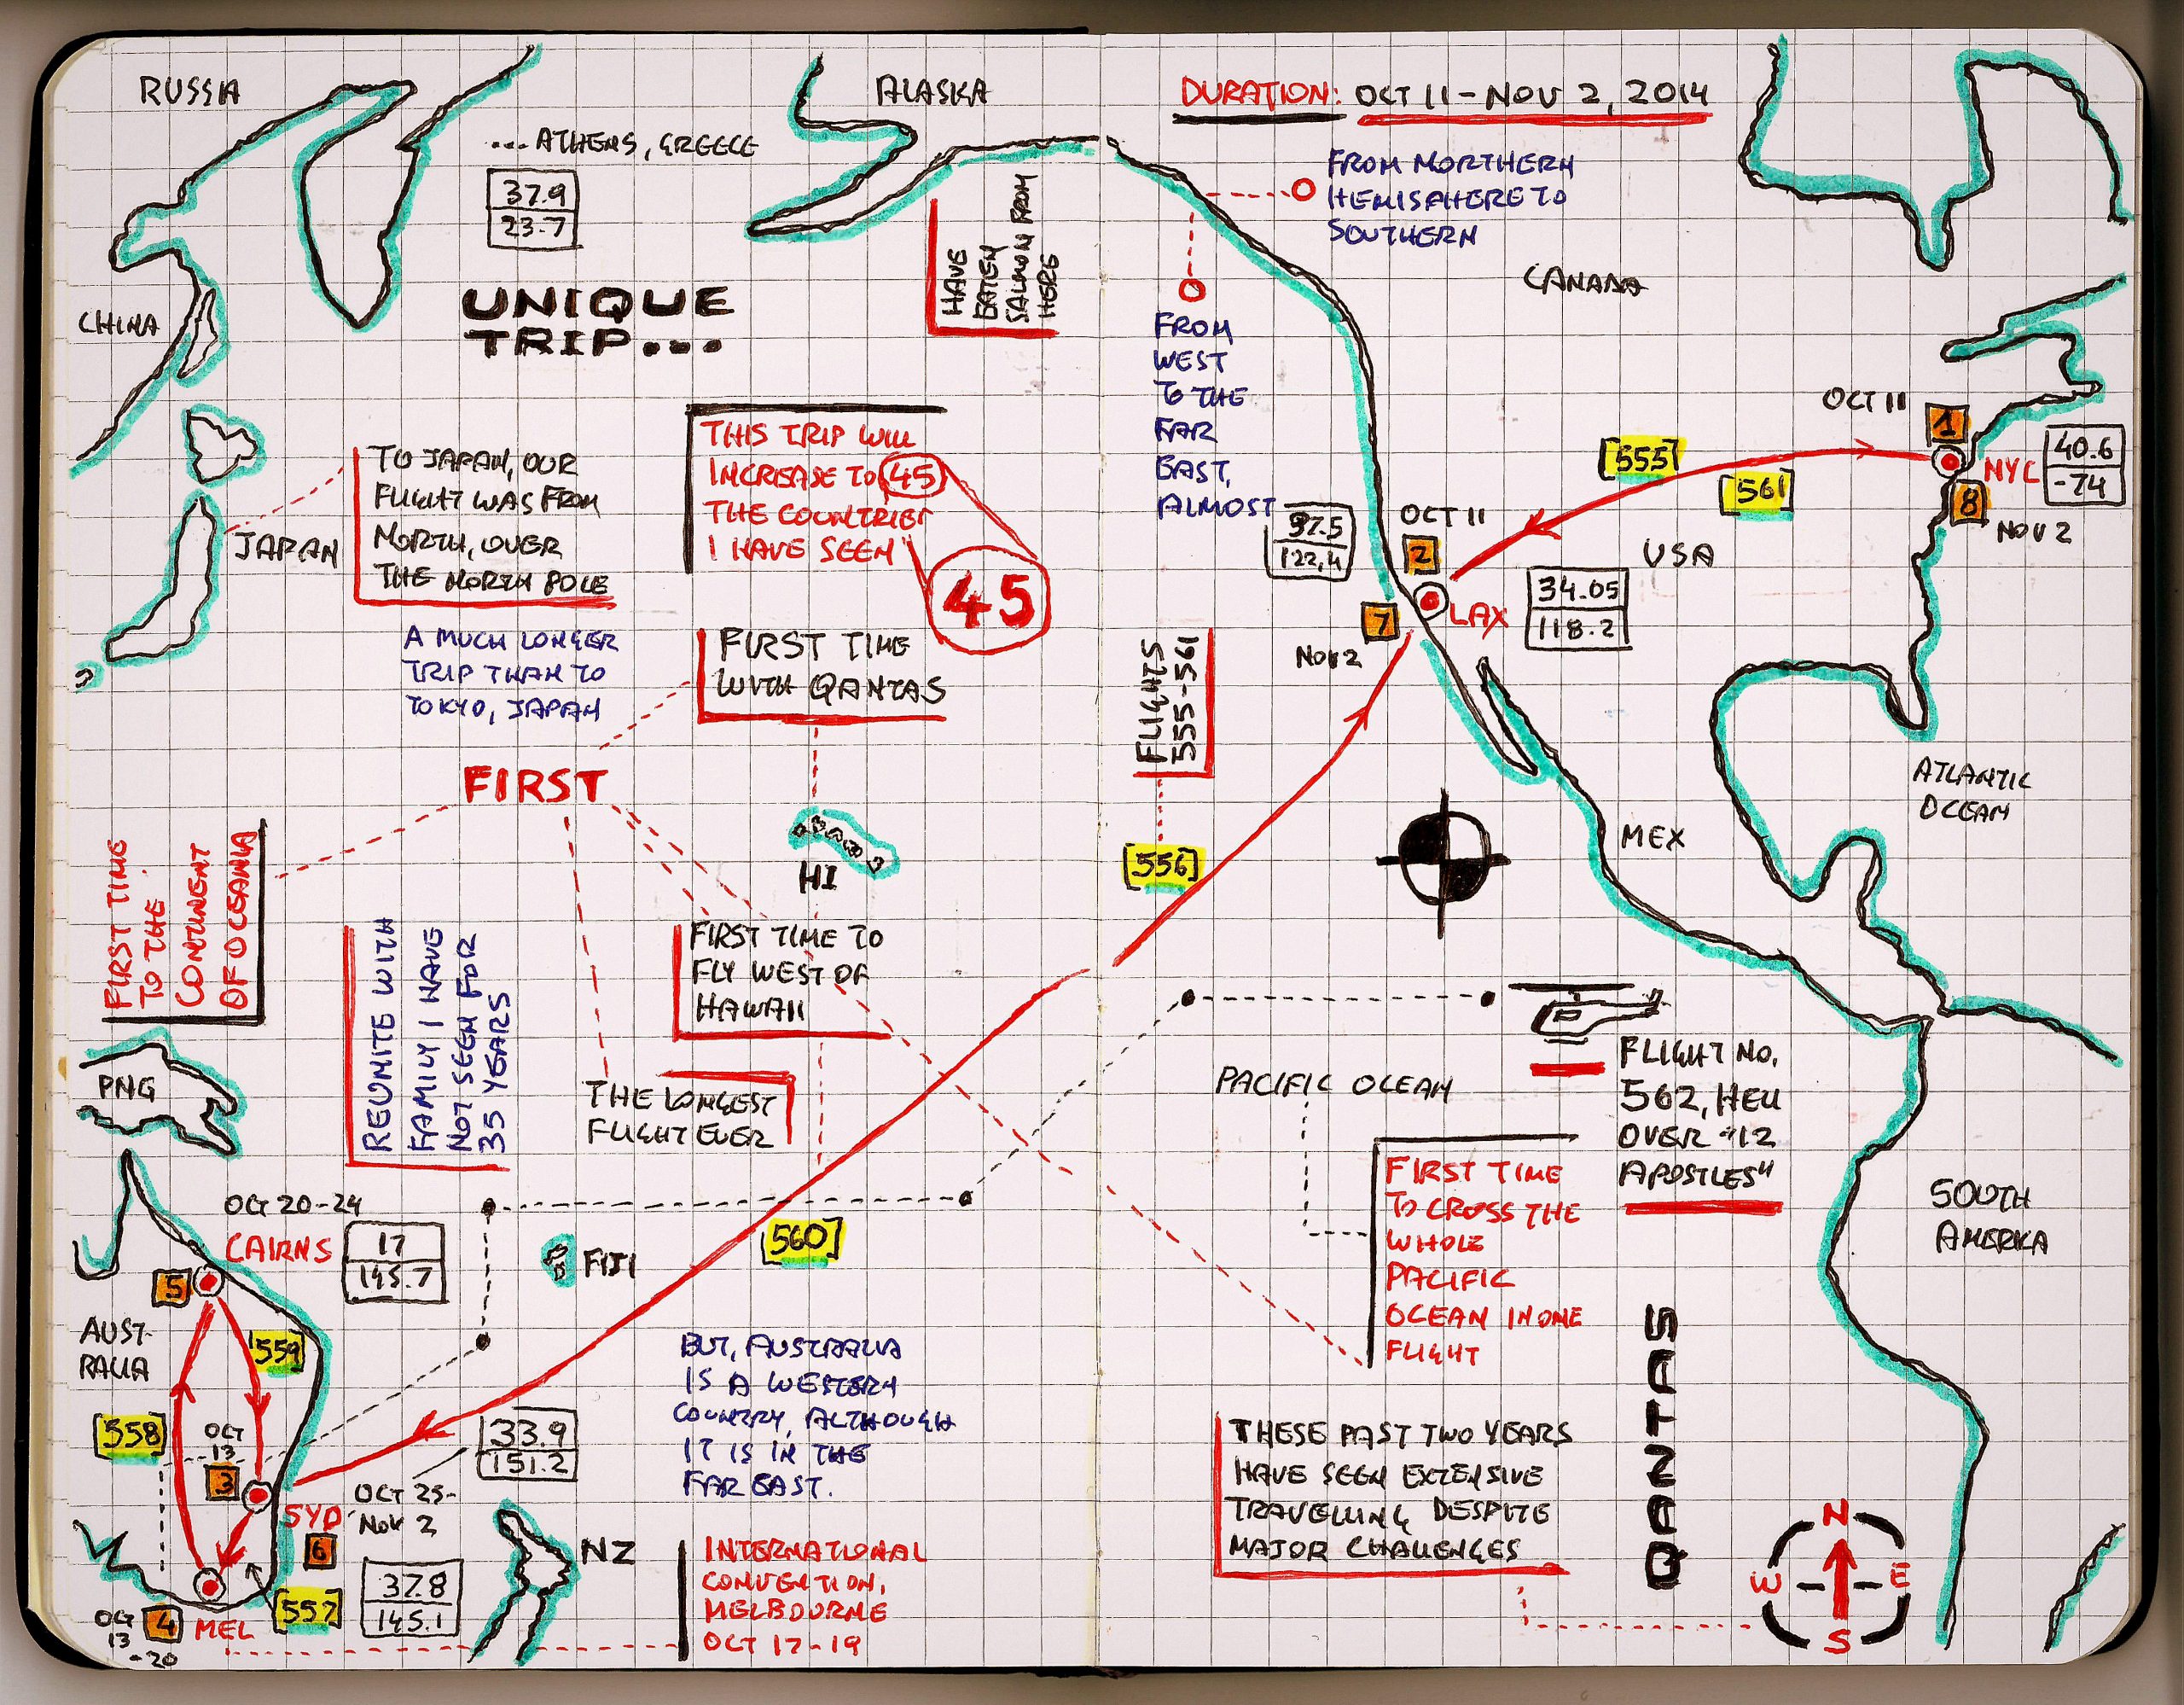 RUSSIA
ALASKA
DURATION: OCT 11 - NOV 2, 2014
... ATHENS, GREECE
37.9
23.7
UNIQUE
TRIP...
HAVE
EATEN
SALMON FROM
HERE
FROM NORTHERN
HEMISPHERE TO
SOUTHERN
FROM
WEST
TO THE
FAR
EAST,
ALMOST
CANADA
CHINA
JAPAN
TO JAPAN, OUR
FLIGHT WAS FROM
NORTH, OVER
THE NORTH POLE
A MUCH LONGER
TRIP THAN TO
TOKYO, JAPAN
THIS TRIP WILL
INCREASE TO 45
THE COUNTRIES
I HAVE SEEN
45
FIRST TIME
WITH QANTAS
OCT 11
1
NYC
40.6
-74
8
NOV 2
[555]
[561]
37.5
122,4
OCT 11
2
LAX
34.05
118.2
7
NOV 2
USA
FLIGHTS
555-561
[556]
FIRST
HI
MEX
ATLANTIC
OCEAN
FIRST TIME
TO THE
CONTINENT
OF OCEANIA
REUNITE WITH
FAMILY I HAVE
NOT SEEN FOR
35 YEARS
FIRST TIME TO
FLY WEST OF
HAWAII
THE LONGEST
FLIGHT EVER
PNG
PACIFIC OCEAN
FLIGHT NO.
562, HELI
OVER "12
APOSTLES"
FIRST TIME
TO CROSS THE
WHOLE
PACIFIC
OCEAN IN ONE
FLIGHT
SOUTH
AMERIKA
OCT 20-24
CAIRNS
17
145.7
5
FIJI
[560]
AUST-
RALIA
[559]
[558]
OCT
13
3
SYD
OCT 25-
NOV 2
6
33.9
151.2
BUT, AUSTRALIA
IS A WESTERN
COUNTRY, ALTHOUGH
IT IS IN THE
FAR EAST.
THESE PAST TWO YEARS
HAVE SEEN EXTENSIVE
TRAVELLING DESPITE
MAJOR CHALLENGES
QANTAS
N
W
E
S
NZ
INTERNATIONAL
CONVENTION,
MELBOURNE
OCT 17-19
37.8
145.1
[557]
OCT
13
-20
4
MEL